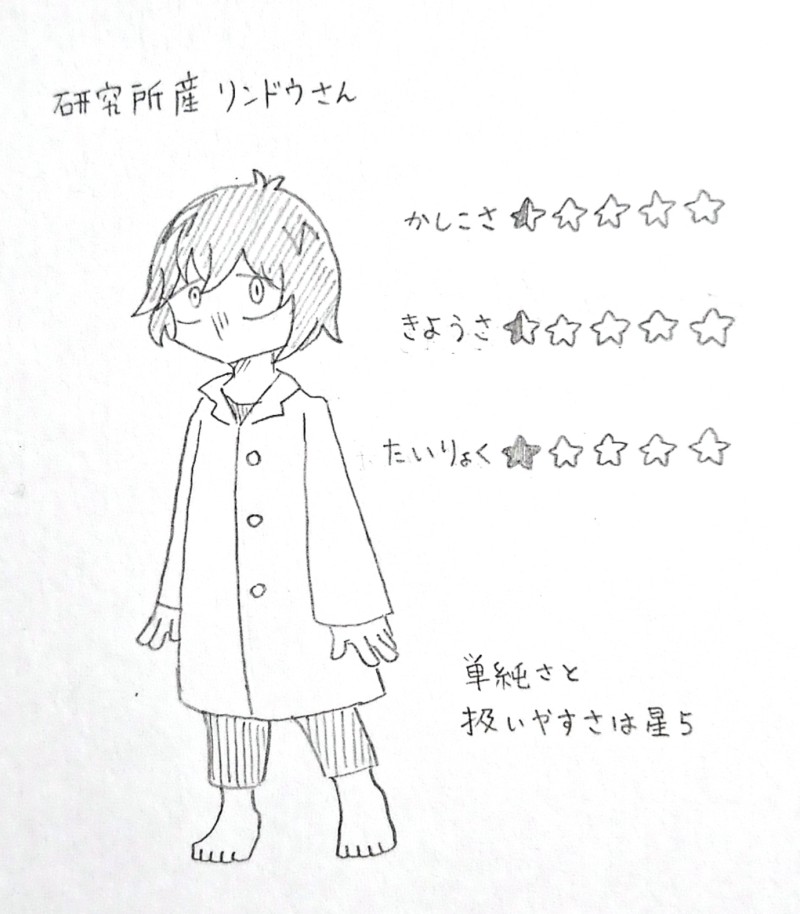 研究所産 リンドウさん
かしこさ ★☆☆☆☆
きようさ ★☆☆☆☆
たいりょく ★☆☆☆☆
単純さと
扱いやすさは星5